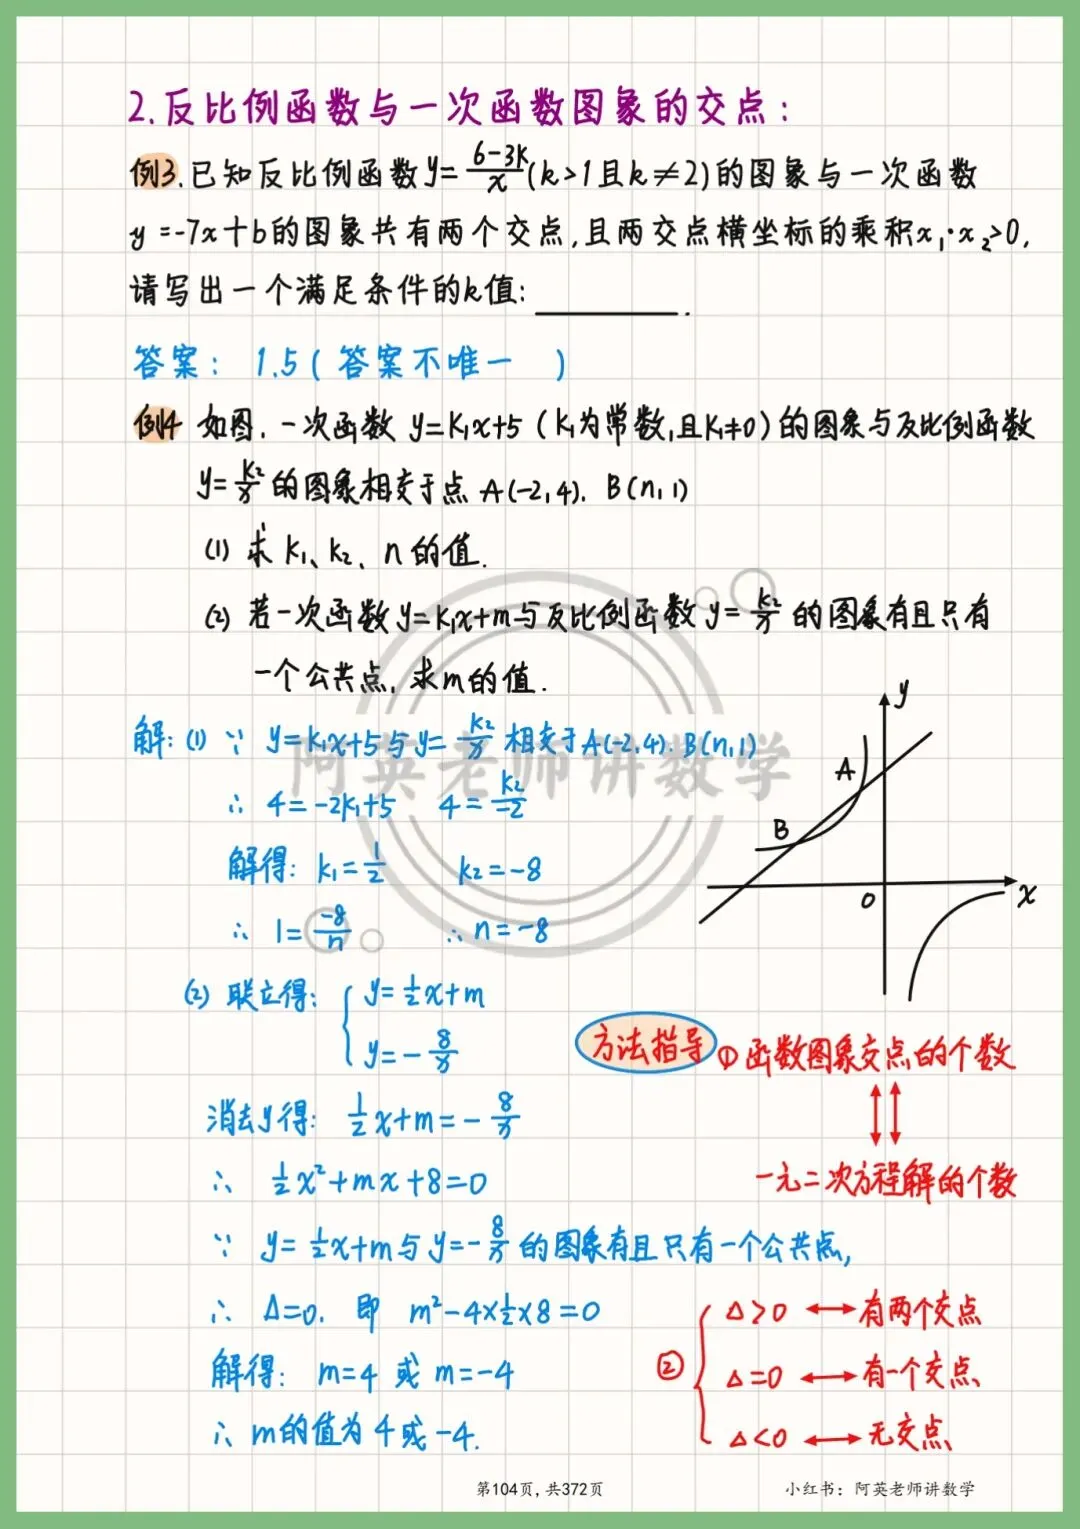 2.反比例函数与一次函数图象的交点:
例3.已知反比例函数y=(6-3k)/x(k>1且k≠2)的图象与一次函数
y=-7x+b的图象共有两个交点,且两交点横坐标的乘积x₁·x₂>0,
请写出一个满足条件的k值:________.
答案: 1.5(答案不唯一 )
例4 如图.一次函数 y=k₁x+5(k₁为常数,且k₁≠0)的图象与反比例函数
y=k₂/x的图象相交于点 A(-2,4). B(n,1)
(1) 求 k₁、k₂、n的值.
(2) 若一次函数y=k₁x+m与反比例函数y=k₂/x的图象有且只有
一个公共点,求m的值.
解:(1) ∵ y=k₁x+5与y=k₂/x相交于A(-2,4).B(n,1)
∴ 4=-2k₁+5 4=k₂/-2
解得: k₁=1/2 k₂=-8
∴ 1=-8/n ∴n=-8
(2) 联立得: { y=1/2x+m
y=-8/x
消去y得: 1/2x+m=-8/x
∴ 1/2x²+mx+8=0
∵ y=1/2x+m与y=-8/x的图象有且只有一个公共点,
∴ Δ=0. 即 m²-4×1/2×8=0
解得: m=4 或 m=-4
∴ m的值为 4或-4.
y
A
B
O
x
方法指导 ①函数图象交点的个数
一元二次方程解的个数
② { Δ>0 ⟷ 有两个交点
Δ=0 ⟷ 有一个交点
Δ<0 ⟷ 无交点
阿英老师讲数学
第104页,共372页
小红书: 阿英老师讲数学